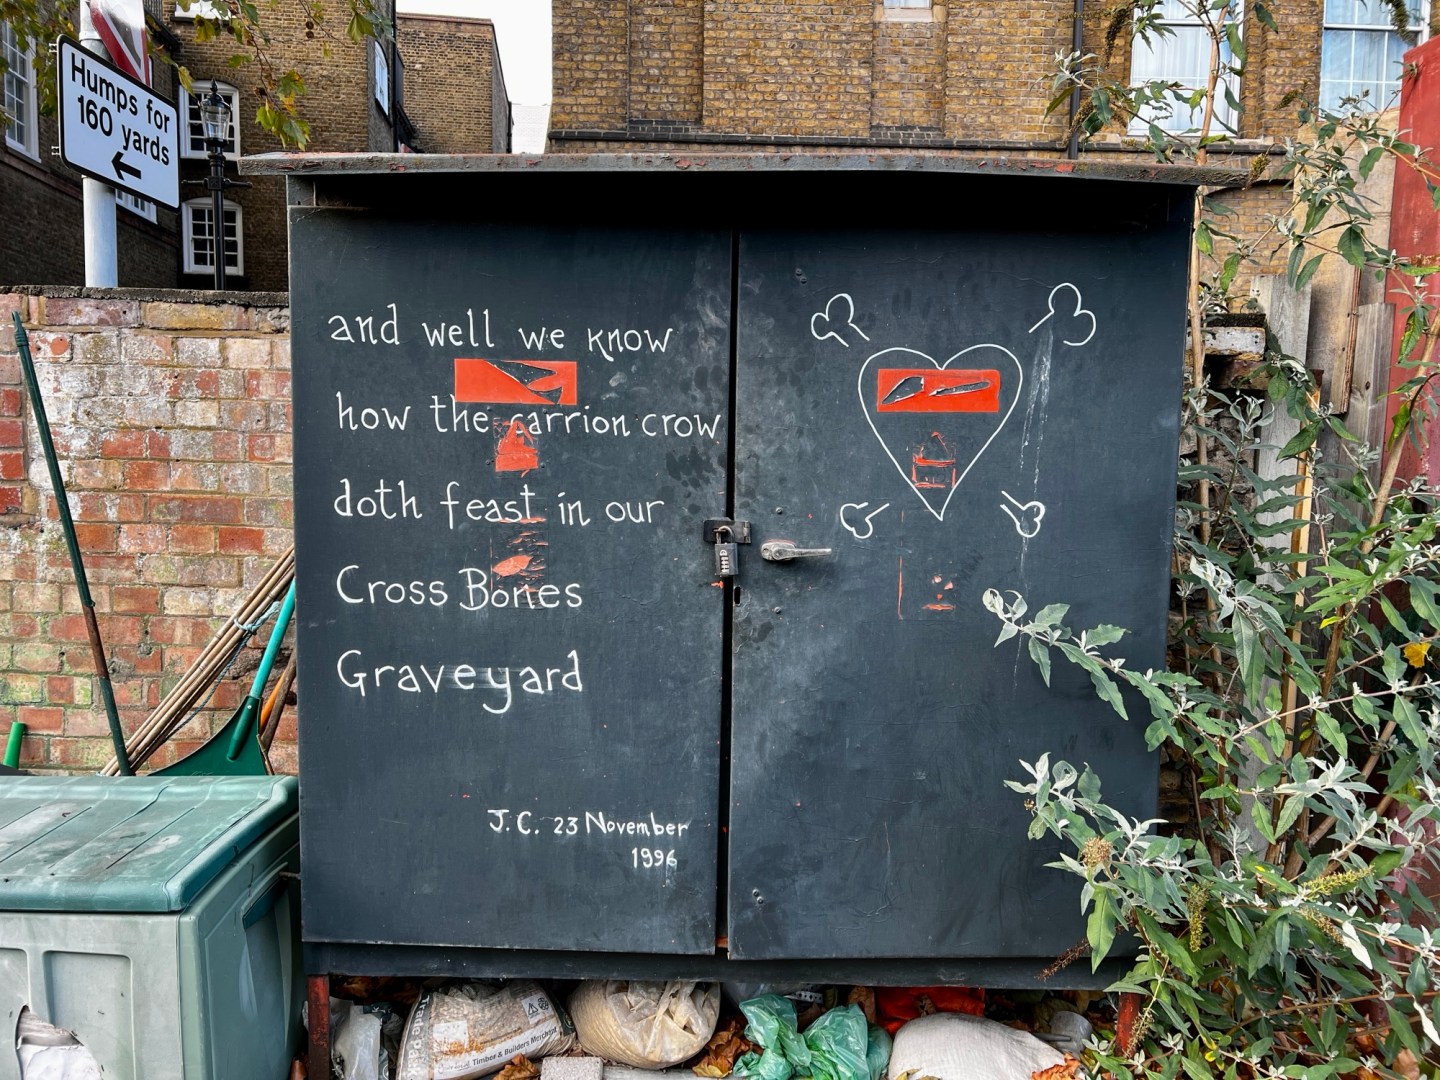 Humps for
160 yards
and well we know
how the carrion crow
doth feast in our
Cross Bones
Graveyard
J.C. 23 November
1996
Trade Pack
Timber & Builders Merchant